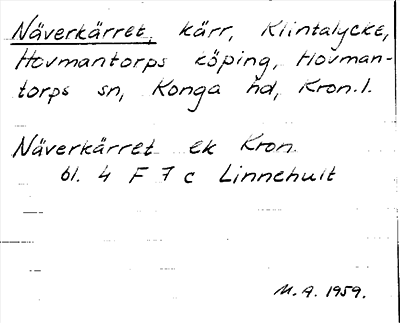 Näverkärret, kärr, Klintalycke,
Hovmantorps köping, Hovman-
torps sn, Konga hd, Kron.l.
Näverkärret ek Kron.
bl. 4 F 7 c Linnehult
M.A. 1959.